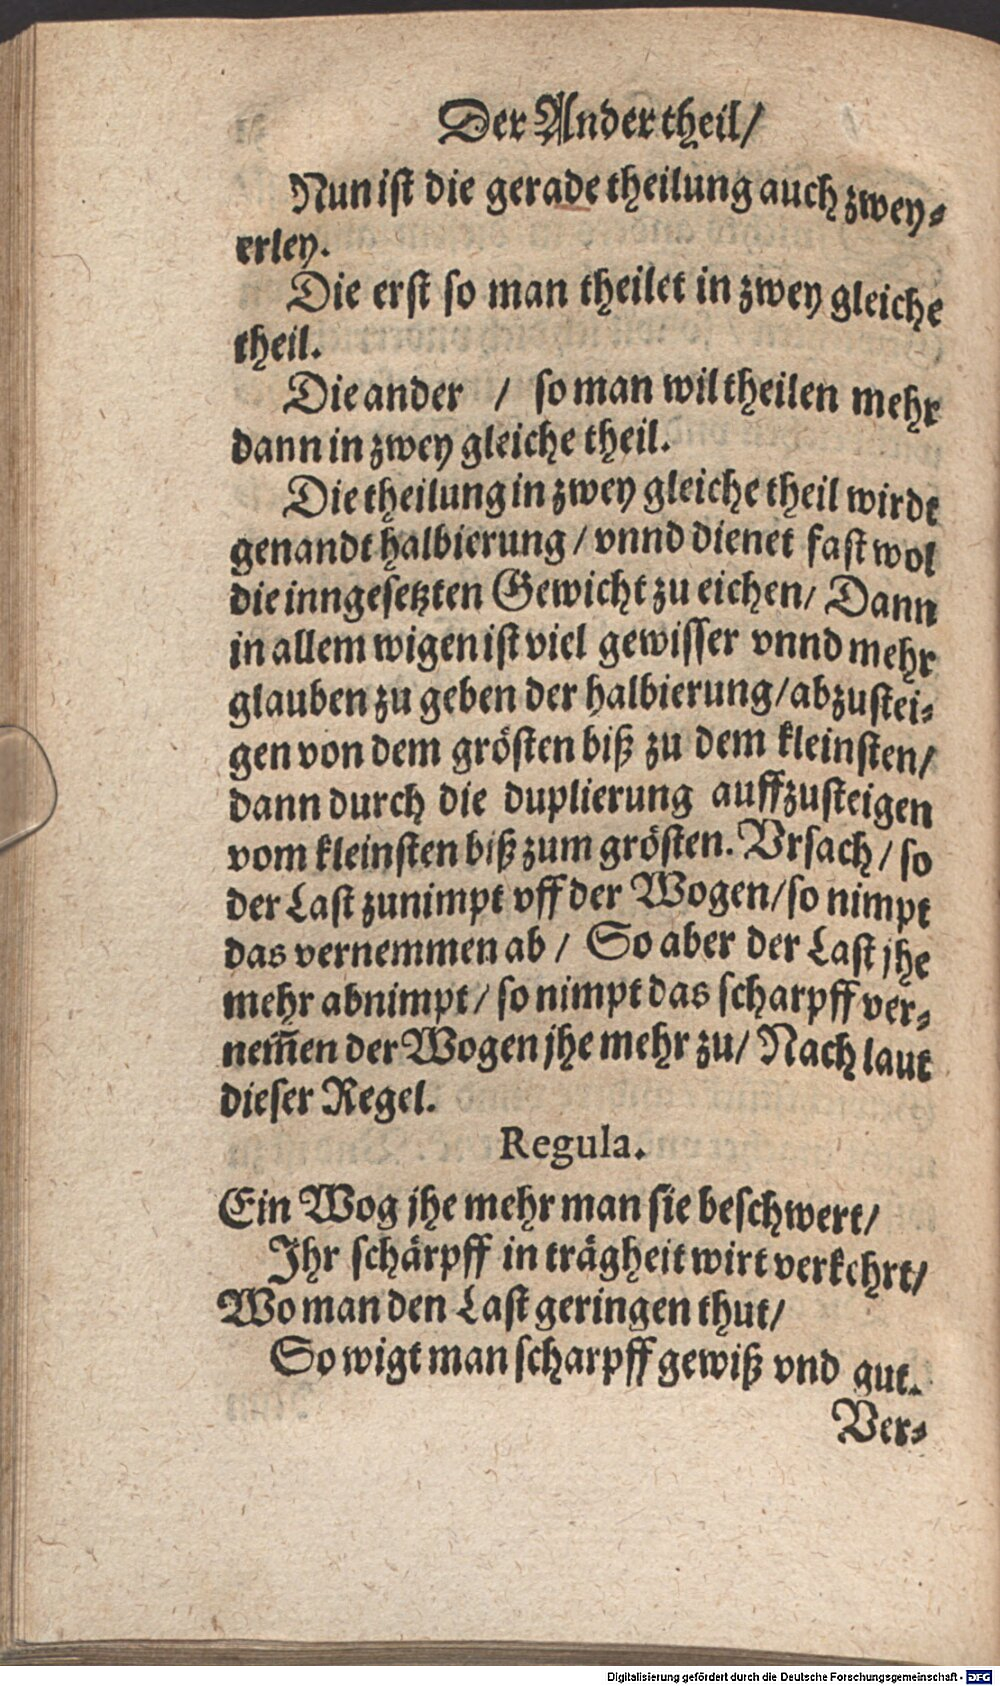 Der Ander theil/
Nun ist die gerade theilung auch zwey⸗
erley.
Die erst so man theilet in zwey gleiche
theil.
Die ander / so man wil theilen mehr
dann in zwey gleiche theil.
Die theilung in zwey gleiche theil wirdt
genandt halbierung / vnnd dienet fast wol
die inngesetzten Gewicht zu eichen/ Dann
in allem wigen ist viel gewisser vnnd mehr
glauben zu geben der halbierung/ abzustei⸗
gen von dem grösten biß zu dem kleinsten/
dann durch die duplierung auffzusteigen
vom kleinsten biß zum grösten. Vrsach / so
der Last zunimpt vff der Wogen/ so nimpt
das vernemmen ab / So aber der Last jhe
mehr abnimpt / so nimpt das scharpff ver⸗
nem̃en der Wogen jhe mehr zu/ Nach laut
dieser Regel.
Regula.
Ein Wog jhe mehr man sie beschwert/
Ihr schärpff in trägheit wirt verkehrt/
Wo man den Last geringen thut/
So wigt man scharpff gewiß vnd gut.
Ver⸗
Digitalisierung gefördert durch die Deutsche Forschungsgemeinschaft - DFG